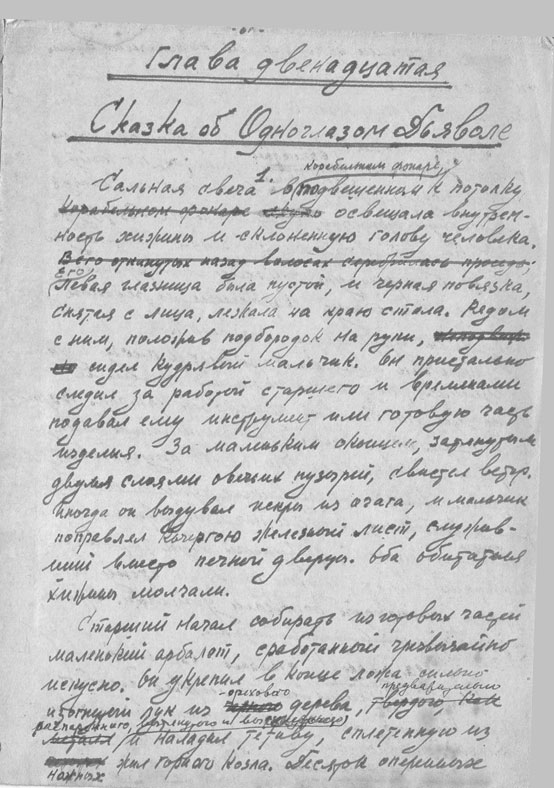 Глава двенадцатая
Сказка об Одноглазом Дьяволе
1.
корабельном фонаре,
Сальная свеча в подвешенном к потолку
корабельном фонаре освещала внутрен-
ность хижины и склоненную голову человека.
В его откинутых назад волосах серебрилась
Его
Левая глазница была пустой, и черная повязка,
снятая с лица, лежала на краю стола. Рядом
с ним, положив подбородок на руки,
сидел кудрявый мальчик. Он пристально
следил за работой старшего и временами
подавал ему инструмент или готовую часть
изделия. За маленьким окошцем, затянутым
двумя слоями овечьих пузырей, свистел ветер.
Иногда он выдувал искры из очага, и мальчик
поправлял кочергою железный лист, служив-
ший вместо печной дверцы. Оба обитателя
хижины молчали.
Старший начал собирать из готовых частей
маленький арбалет, сработанный чрезвычайно
искусно. Он укрепил в конце ложа сильно
орехового предварительно
изогнутый лук из дерева, твердого, как
распаренного
металл и наладил тетиву, сплетенную из
ножных жил горного козла. Десяток оперенных